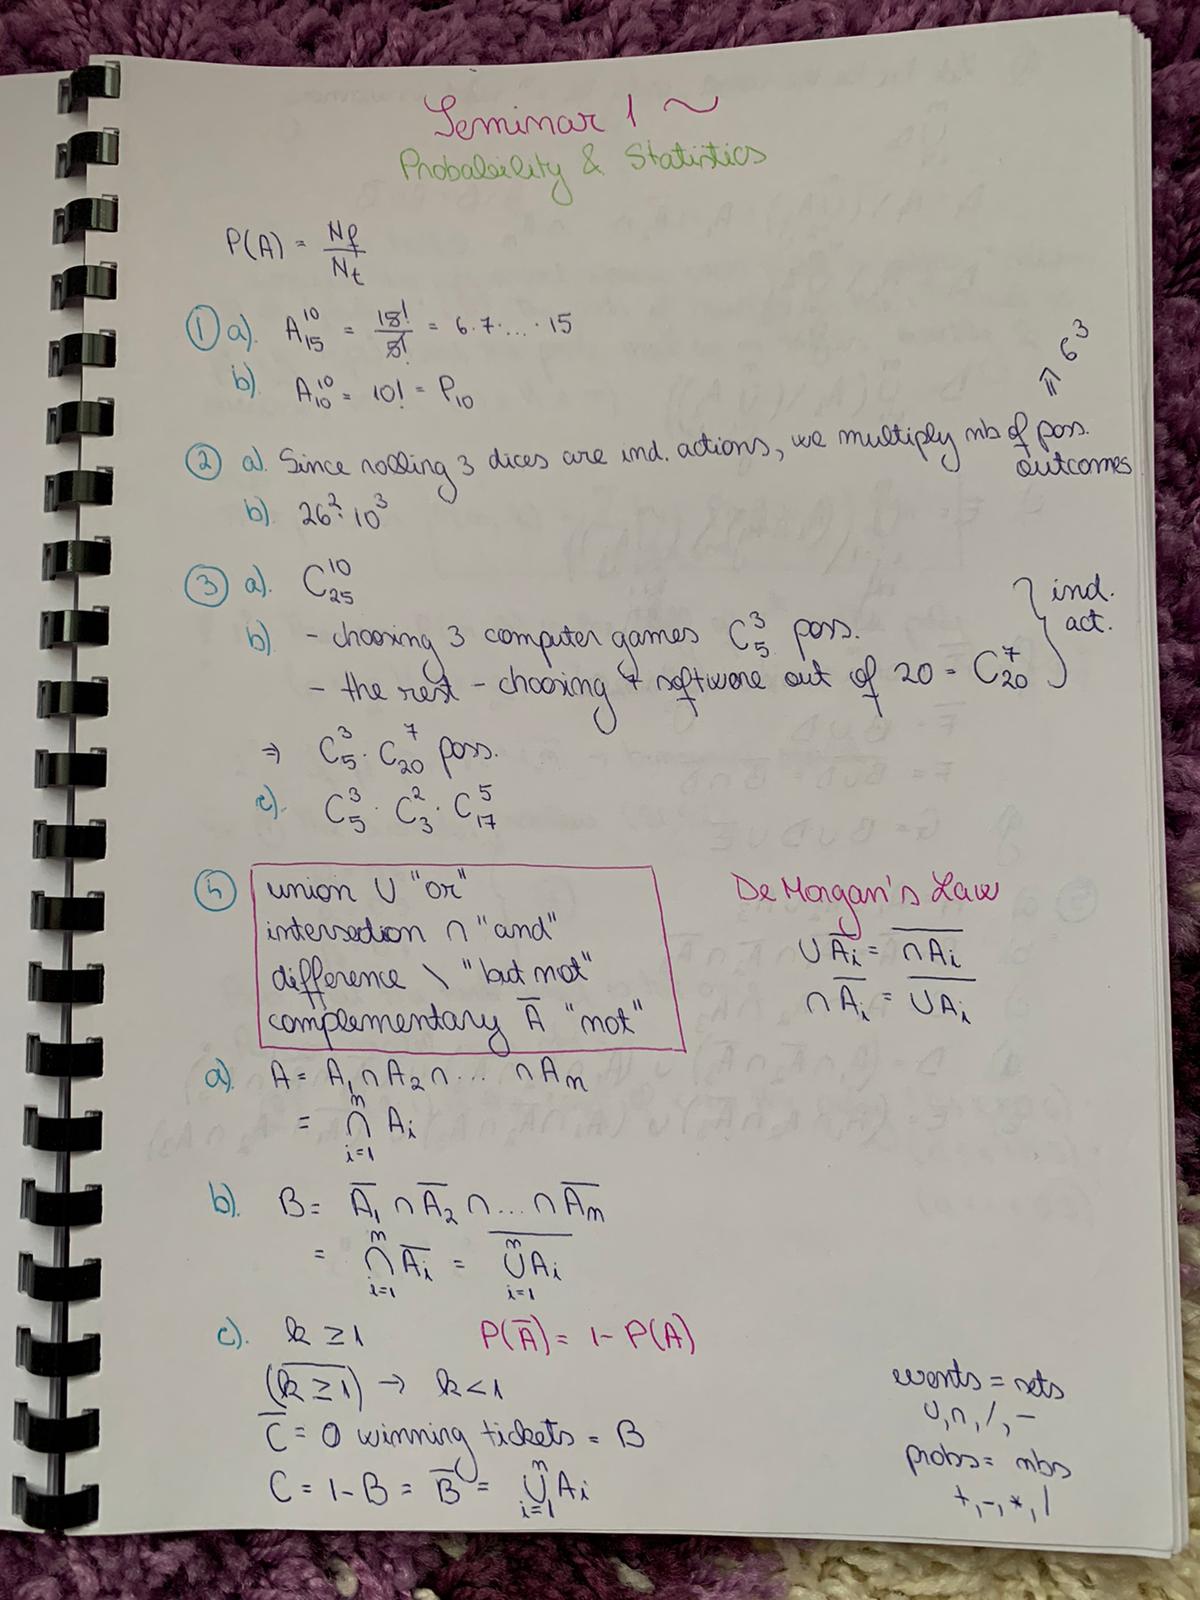 Seminar 1 ~
Probability & Statistics
P(A) = Nf / Nt
① a). A₁₅¹⁰ = 15! / 5! = 6·7·...·15
b). A₁₀¹⁰ = 10! = P₁₀
⇒ 6³
② a). Since rolling 3 dices are ind. actions, we multiply nb of poss. outcomes
b). 26²·10³
③ a). C₂₅¹⁰
b). - choosing 3 computer games C₅³ poss.
- the rest - choosing 7 software out of 20 = C₂₀⁷
} ind. act.
⇒ C₅³ · C₂₀⁷ poss.
c). C₅³ · C₃² · C₁₇⁵
④ union ∪ "or"
intersection ∩ "and"
difference \ "but not"
complementary A̅ "not"
De Morgan's Law
∪ A̅ᵢ = \overline{∩ Aᵢ}
∩ A̅ᵢ = \overline{∪ Aᵢ}
a). A = A₁ ∩ A₂ ∩ ... ∩ Aₙ
= ∩ᵢ₌₁ⁿ Aᵢ
b). B = A̅₁ ∩ A̅₂ ∩ ... ∩ A̅ₙ
= ∩ᵢ₌₁ⁿ A̅ᵢ = \overline{∪ᵢ₌₁ⁿ Aᵢ}
c). k ≥ 1 P(A̅) = 1 - P(A)
(\overline{k ≥ 1}) → k < 1
C̅ = 0 winning tickets = B
C = 1 - B = B̅ = ∪ᵢ₌₁ⁿ Aᵢ
events = sets
∪, ∩, /, —
probs = nbs
+, -, *, /